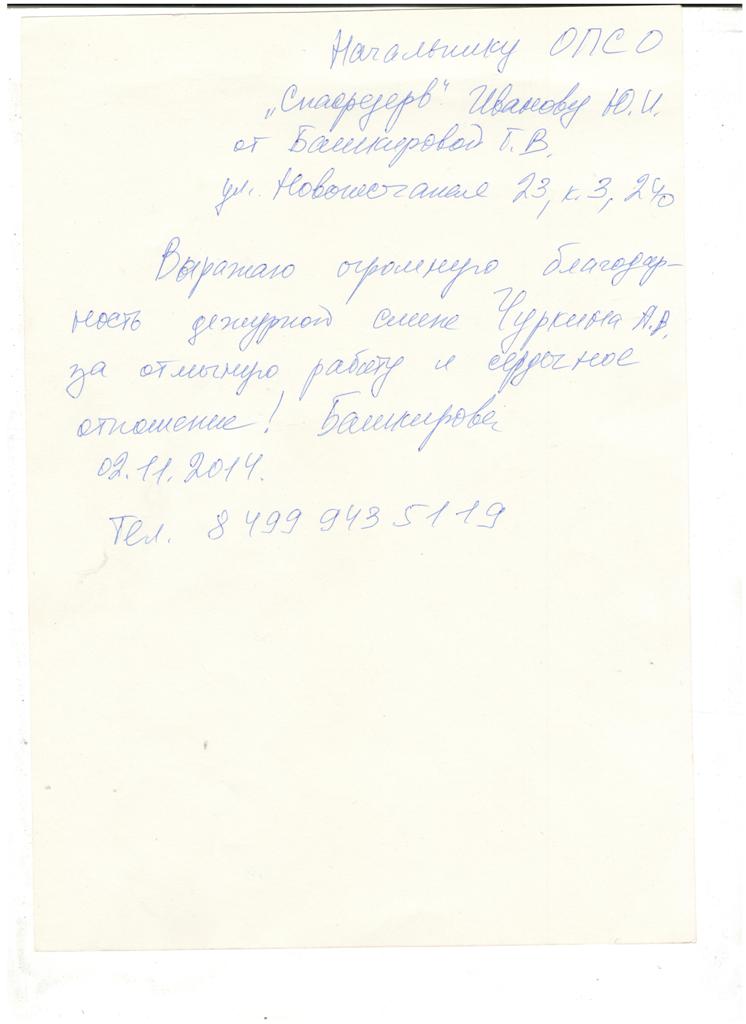 Начальнику ОПСО
„Спасрезерв" Иванову Ю.И.
от Башкировой Г.В.
ул. Новопесчаная 23, к.3, 240
Выражаю огромную благодар-
ность дежурной смене Чуркина А.В.
за отличную работу и сердечное
отношение! Башкирова
02.11.2014.
Тел. 8 499 943 51 19